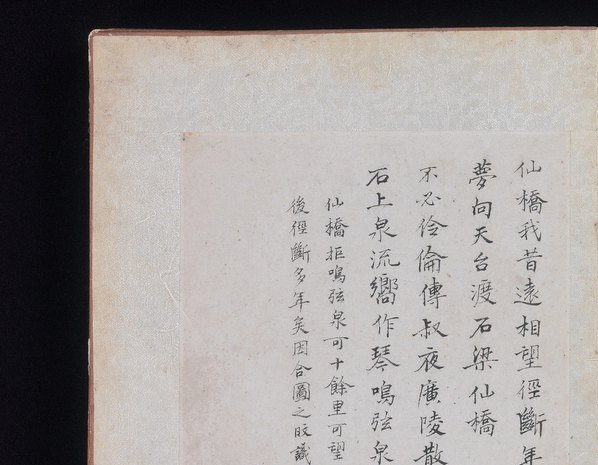 仙橋我昔遠相望徑斷年
夢向天台渡石梁仙橋
不必伶倫傳叔夜廣陵散
石上泉流嚮作琴鳴弦泉
仙橋拒鳴弦泉可十餘里可望
後徑斷多年矣因合圖之